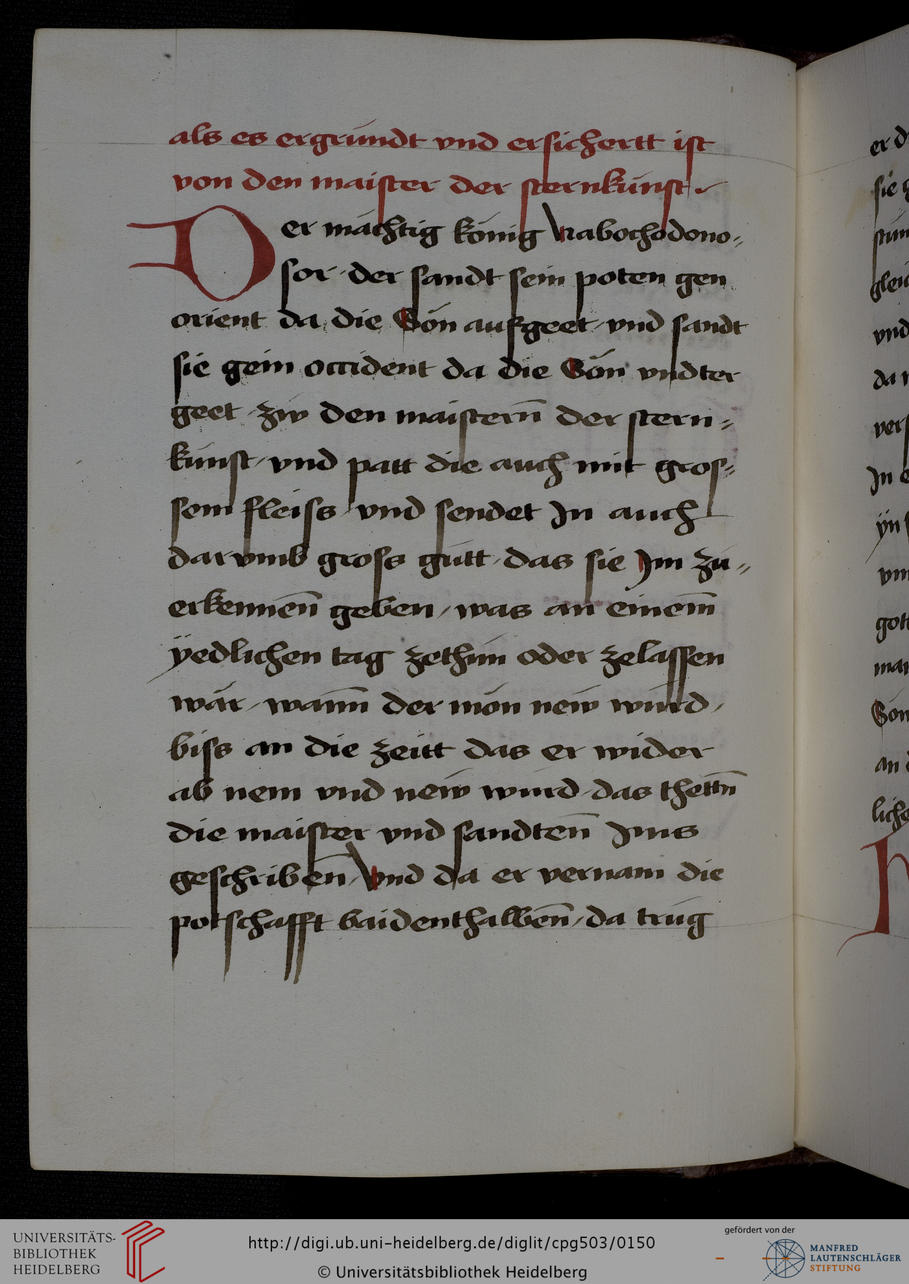 als es ergründt vnd ersichertt ist
von den maister der sternkünst
Der mächtig könig Nabochodono=
sor · der sandt sein poten gen
orient da die Són aufgeet · vnd sandt
sie gein occident da die Són vndter
geet · zw den maistern̄ der stern=
kunst · vnd patt die auch mit gros=
sem fleiss · vnd sendet In auch
darvmb gross gůtt · das sie Im zu=
erkennen̄ geben / was an einem̄
ÿedlichen tag zethun oder zelassen
wär / wann̄ der món new wurd /
biss an die zeitt das er wider
ab nem vnd new wurd · das thettn̄
die maister vnd sandten̄ Ims
geschriben̄ / Vnd da er vernam die
potschafft baidenthalben̄ / da trug
er d
sie g
stün
gleic
vnd
da
vers
In e
ÿn s
vm
gott
man
Són
an
liche
UNIVERSITÄTS-
BIBLIOTHEK
HEIDELBERG
http://digi.ub.uni-heidelberg.de/diglit/cpg503/0150
© Universitätsbibliothek Heidelberg
gefördert von der
MANFRED
LAUTENSCHLÄGER
STIFTUNG